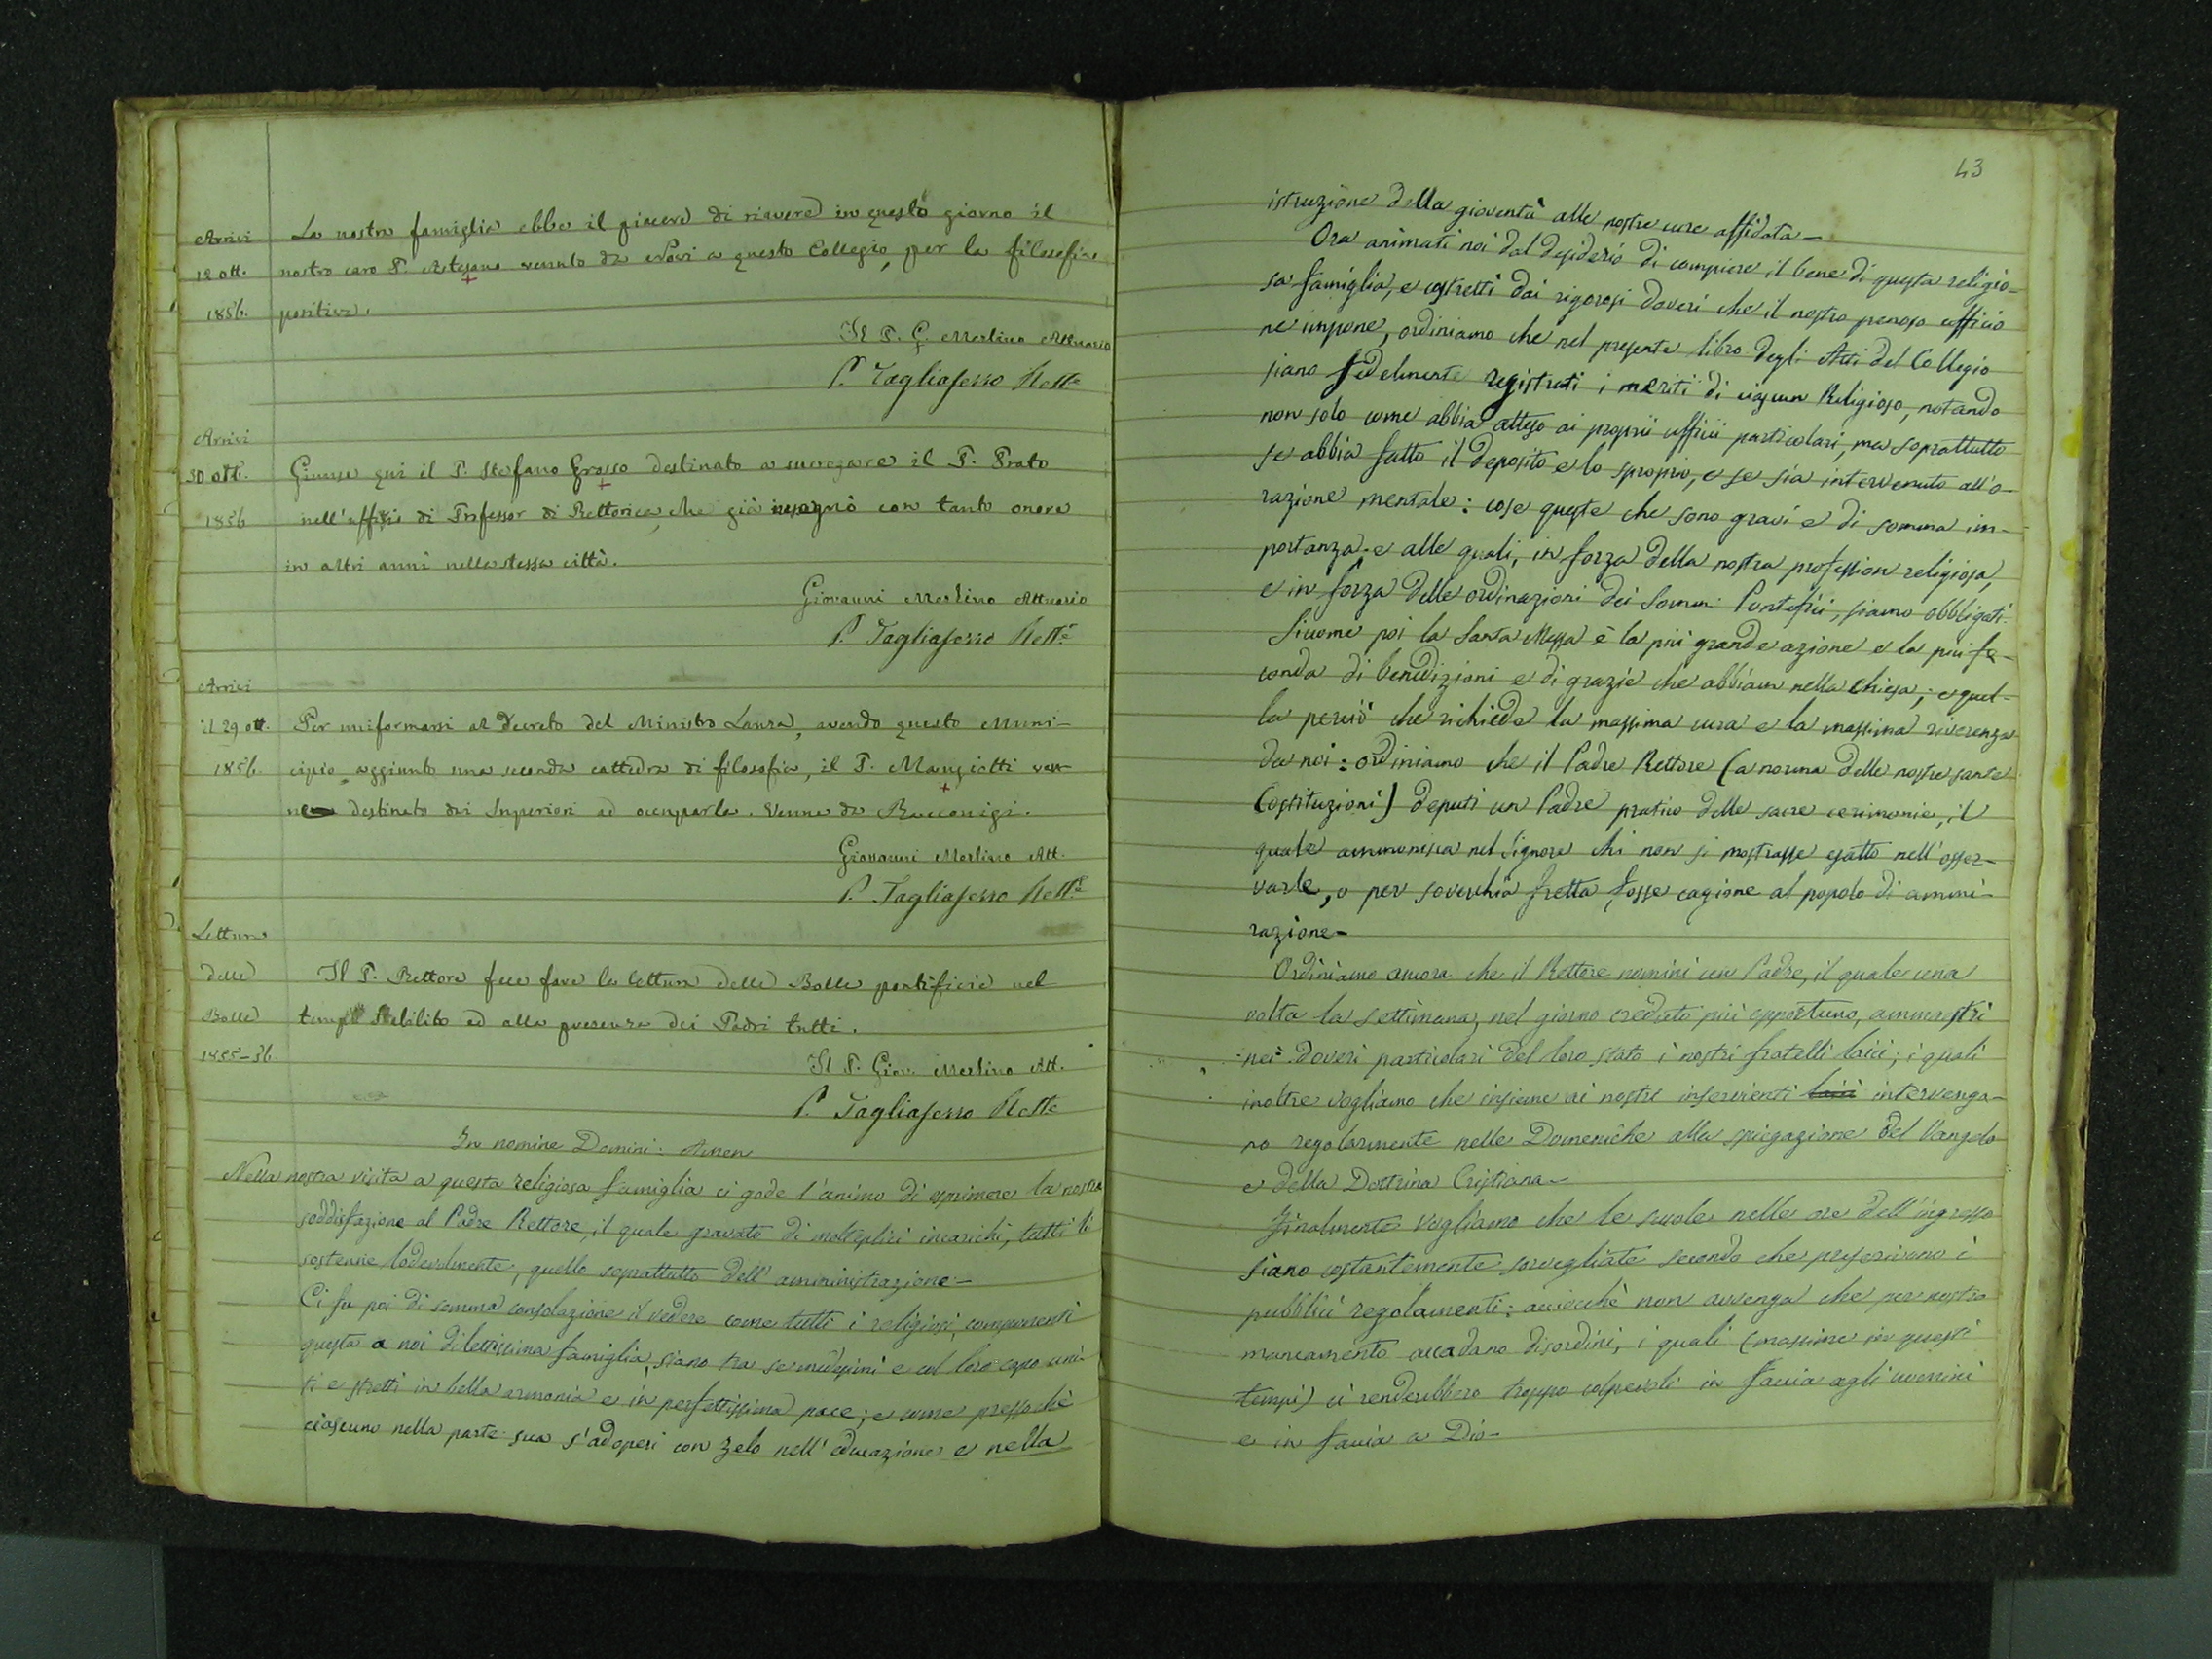 Arrivi
12 ott.
1856.
La nostra famiglia ebbe il piacere di riavere in questo giorno il
nostro caro P. Artesano venuto da Novi a questo Collegio, per la filosofia
positiva.
Il P. G. Merlino Attuario
P. Tagliaferro Rett.e
Arrivi
30 ott.
1856
Giunse qui il P. Stefano Grosso destinato a surrogare il P. Prato
nell'uffizio di Professor di Rettorica, che già insegnò con tanto onore
in altri anni nella stessa città.
Giovanni Merlino Attuario
P. Tagliaferro Rett.e
Arrivi
il 29 ott.
1856.
Per uniformarsi al Decreto del Ministro Lanza, avendo questo Muni-
cipio aggiunto una seconda cattedra di filosofia, il P. Mangiotti ven-
ne destinato dai Superiori ad occuparla. Venne da Racconigi.
Giovanni Merlino Att.
P. Tagliaferro Rett.e
Lettura
delle
Bolle
1855-56.
Il P. Rettore fece fare la lettura delle Bolle pontificie nel
tempo stabilito ed alla presenza dei Padri tutti.
Il P. Giov. Merlino Att.
P. Tagliaferro Rett.e
In nomine Domini: Amen
Nella nostra visita a questa religiosa famiglia ci gode l'animo di esprimere la nostra
soddisfazione al Padre Rettore, il quale gravato di molteplici incarichi, tutti li
sostenne lodevolmente, quello soprattutto dell'amministrazione-
Ci fu poi di somma consolazione il vedere come tutti i religiosi, componenti
questa a noi dilettissima famiglia, siano tra se medesimi e col loro capo uni-
ti e stretti in bella armonia e in perfettissima pace; e come pressochè
ciascuno nella parte sua s'adoperi con zelo nell'educazione e nella
43
istruzione della gioventù alle nostre cure affidata-
Ora animati noi dal desiderio di compiere il bene di questa religio-
sa famiglia, e costretti dai rigorosi doveri che il nostro penoso ufficio
ne impone, ordiniamo che nel presente libro degli Atti del Collegio
siano fedelmente registrati i meriti di ciascun Religioso, notando
non solo come abbia atteso ai proprii ufficii particolari, ma soprattutto
se abbia fatto il deposito e lo sproprio, e se sia intervenuto all'o-
razione mentale: cose queste che sono gravi e di somma im-
portanza, e alle quali, in forza della nostra profession religiosa,
e in forza delle ordinazioni dei Sommi Pontefici, siamo obbligati.
Siccome poi la Santa Messa è la più grande azione e la più fe-
conda di benedizioni e di grazie che abbiam nella chiesa; e quel-
la perciò che richiede la massima cura e la massima riverenza
da noi: ordiniamo che il Padre Rettore (a norma delle nostre sante
Costituzioni) deputi un Padre pratico delle sacre cerimonie, il
quale ammonisca nel Signore chi non si mostrasse esatto nell'osser-
varle, o per soverchia fretta fosse cagione al popolo di ammi-
razione-
Ordiniamo ancora che il Rettore nomini un Padre, il quale una
volta la settimana, nel giorno creduto più opportuno, ammaestri
nei doveri particolari del loro stato i nostri fratelli laici; i quali
inoltre vogliamo che insieme ai nostri inservienti laici intervenga-
no regolarmente nelle Domeniche alla spiegazione del Vangelo
e della Dottrina Cristiana-
Finalmente vogliamo che le scuole nelle ore dell'ingresso
siano costantemente sorvegliate secondo che prescrivono i
pubblici regolamenti: acciocchè non avvenga che per nostra
mancamento accadano disordini, i quali (massime in questi
tempi) ci renderebbero troppo colpevoli in faccia agli uomini
e in faccia a Dio-